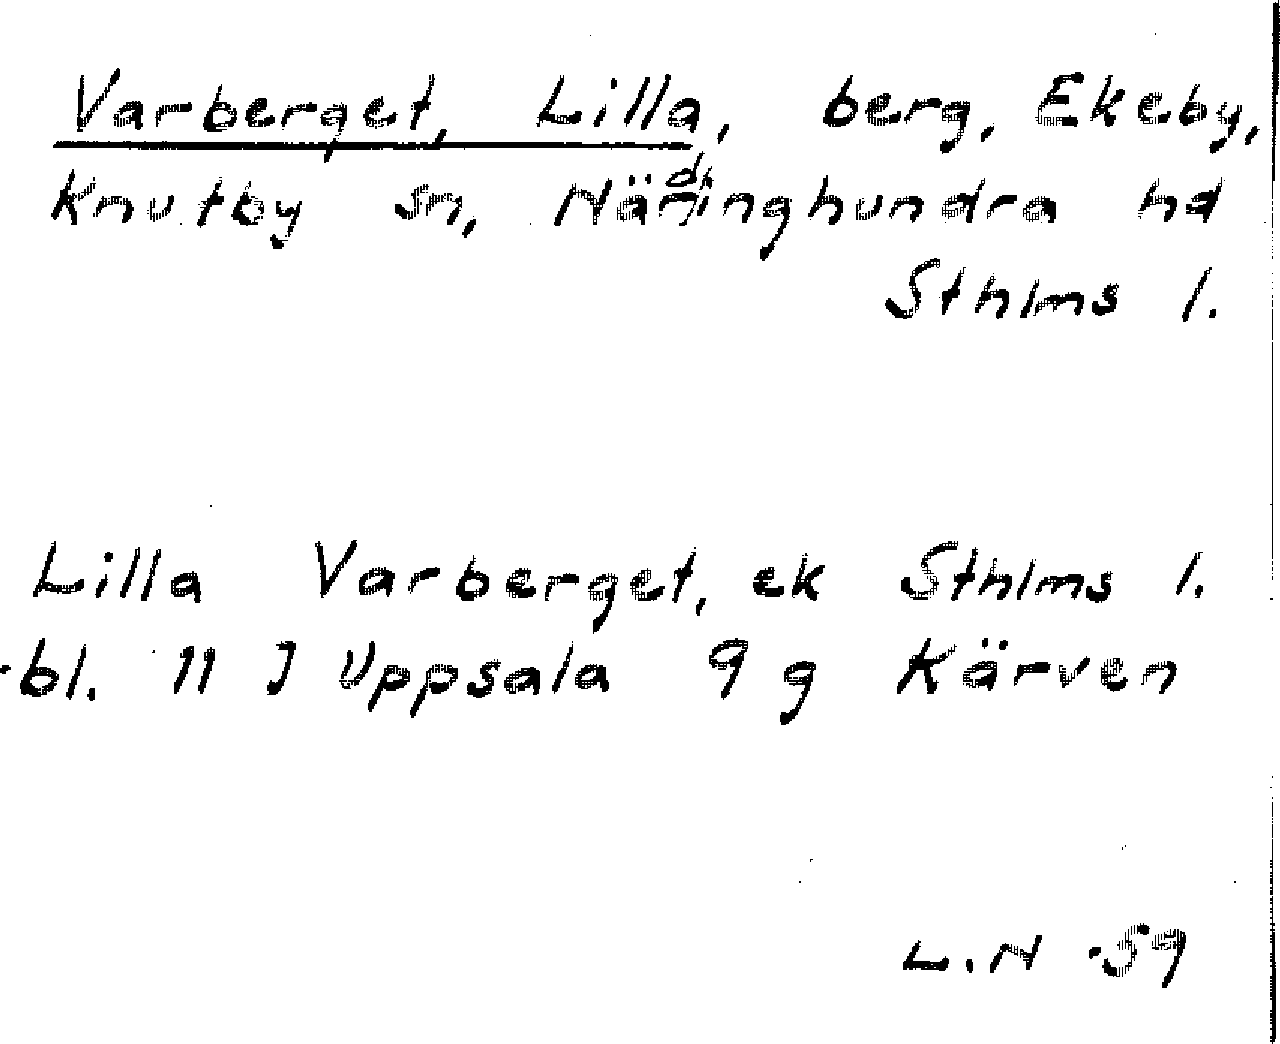 Varberget, Lilla, berg, Ekeby,
Knutby sn, Närdinghundra hd
Sthlms l.
Lilla Varberget, ek Sthlms l.
-bl. 11 J Uppsala 9 g Kärven
L.N -59